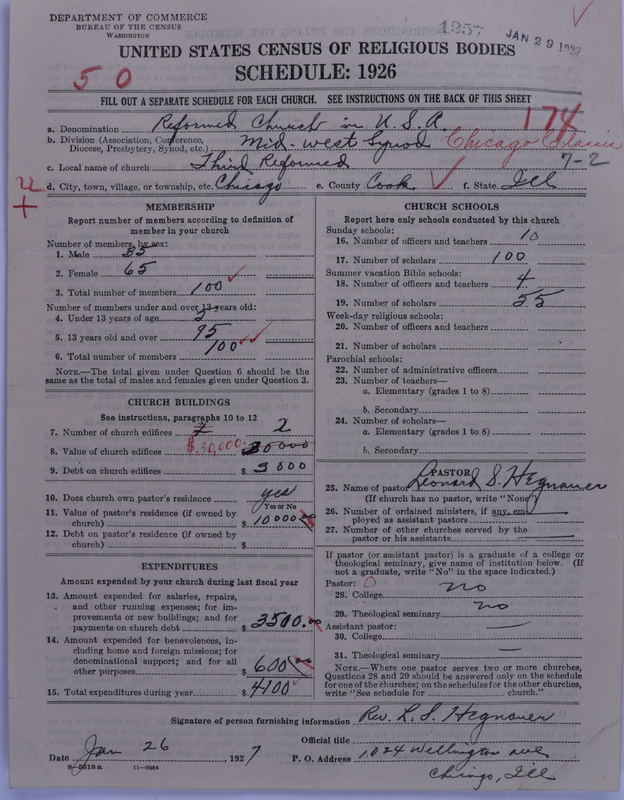 DEPARTMENT OF COMMERCE
BUREAU OF THE CENSUS
WASHINGTON
1257
JAN 29 192
UNITED STATES CENSUS OF RELIGIOUS BODIES
SCHEDULE: 1926
50
FILL OUT A SEPARATE SCHEDULE FOR EACH CHURCH. SEE INSTRUCTIONS ON THE BACK OF THIS SHEET
174
a. Denomination Reformed Church in U.S.A.
b. Division (Association, Conference, Diocese, Presbytery, Synod, etc.) Mid-west Synod Chicago Classis
7-2
c. Local name of church Third Reformed
d. City, town, village, or township, etc. Chicago e. County Cook f. State Ill
MEMBERSHIP
Report number of members according to definition of
member in your church
Number of members, by sex:
1. Male 35
2. Female 65
3. Total number of members 100
Number of members under and over 13 years old:
4. Under 13 years of age 5
5. 13 years old and over 95
6. Total number of members 100
NOTE.—The total given under Question 6 should be the
same as the total of males and females given under Question 3.
CHURCH BUILDINGS
See instructions, paragraphs 10 to 12
7. Number of church edifices 2
8. Value of church edifices $30,000. $ 30000
9. Debt on church edifices $ 3000
10. Does church own pastor's residence yes
Yes or No
11. Value of pastor's residence (if owned by
church) $ 10000.00
12. Debt on pastor's residence (if owned by
church) $
EXPENDITURES
Amount expended by your church during last fiscal year
13. Amount expended for salaries, repairs,
and other running expenses; for im-
provements or new buildings; and for
payments on church debt $ 3500.00
14. Amount expended for benevolences, in-
cluding home and foreign missions; for
denominational support; and for all
other purposes $ 600.00
15. Total expenditures during year $ 4100
CHURCH SCHOOLS
Report here only schools conducted by this church
Sunday schools:
16. Number of officers and teachers 10
17. Number of scholars 100
Summer vacation Bible schools:
18. Number of officers and teachers 4
19. Number of scholars 55
Week-day religious schools:
20. Number of officers and teachers
21. Number of scholars
Parochial schools:
22. Number of administrative officers
23. Number of teachers—
a. Elementary (grades 1 to 8)
b. Secondary
24. Number of scholars—
a. Elementary (grades 1 to 8)
b. Secondary
PASTOR
25. Name of pastor Leonard S. Hegnauer
(If church has no pastor, write "None")
26. Number of ordained ministers, if any, em-
ployed as assistant pastors
27. Number of other churches served by the
pastor or his assistants
If pastor (or assistant pastor) is a graduate of a college or
theological seminary, give name of institution below. (If
not a graduate, write "No" in the space indicated.)
Pastor: 0
28. College no
29. Theological seminary no
Assistant pastor:
30. College —
31. Theological seminary —
NOTE.—Where one pastor serves two or more churches,
Questions 28 and 29 should be answered only on the schedule
for one of the churches; on the schedules for the other churches,
write "See schedule for church."
Signature of person furnishing information Rev. L. S. Hegnauer
Official title
Date Jan 26, 1927 P. O. Address 1024 Wellington ave
Chicago, Ill
8-5518a 11-9084